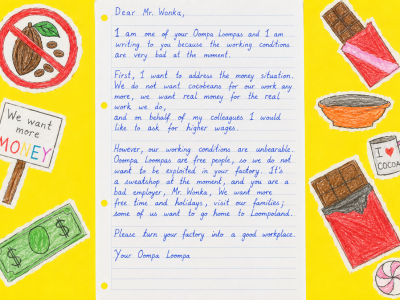 Dear Mr. Wonka,
I am one of your Oompa Loompas and I am
writing to you because the working conditions
are very bad at the moment.
First, I want to address the money situation.
We do not want cocobeans for our work any
more, we want real money for the real
work we do,
and on behalf of my colleagues I would
like to ask for higher wages.
However, our working conditions are unbearable.
Ooompa Loompas are free people, so we do not
want to be exploited in your factory. It's
a sweatshop at the moment, and you are a
bad employer, Mr. Wonka. We want more
free time and holidays, visit our families;
some of us want to go home to Loompaland.
Please turn your factory into a good workplace.
Your Oompa Loompa
We want
more
MONEY
I ♥
COCOA
$ $